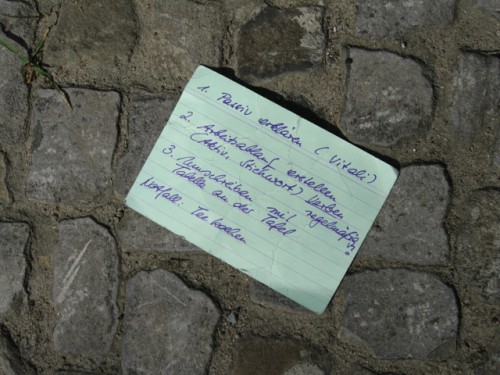 1. Passiv erklären (Vitali)
2. Arbeitsablauf erstellen
(Aktiv, Stichwort) Verben regelmäßig!
3. Umschreiben mit
Tabelle an der Tafel
Notfall: Tee kochen